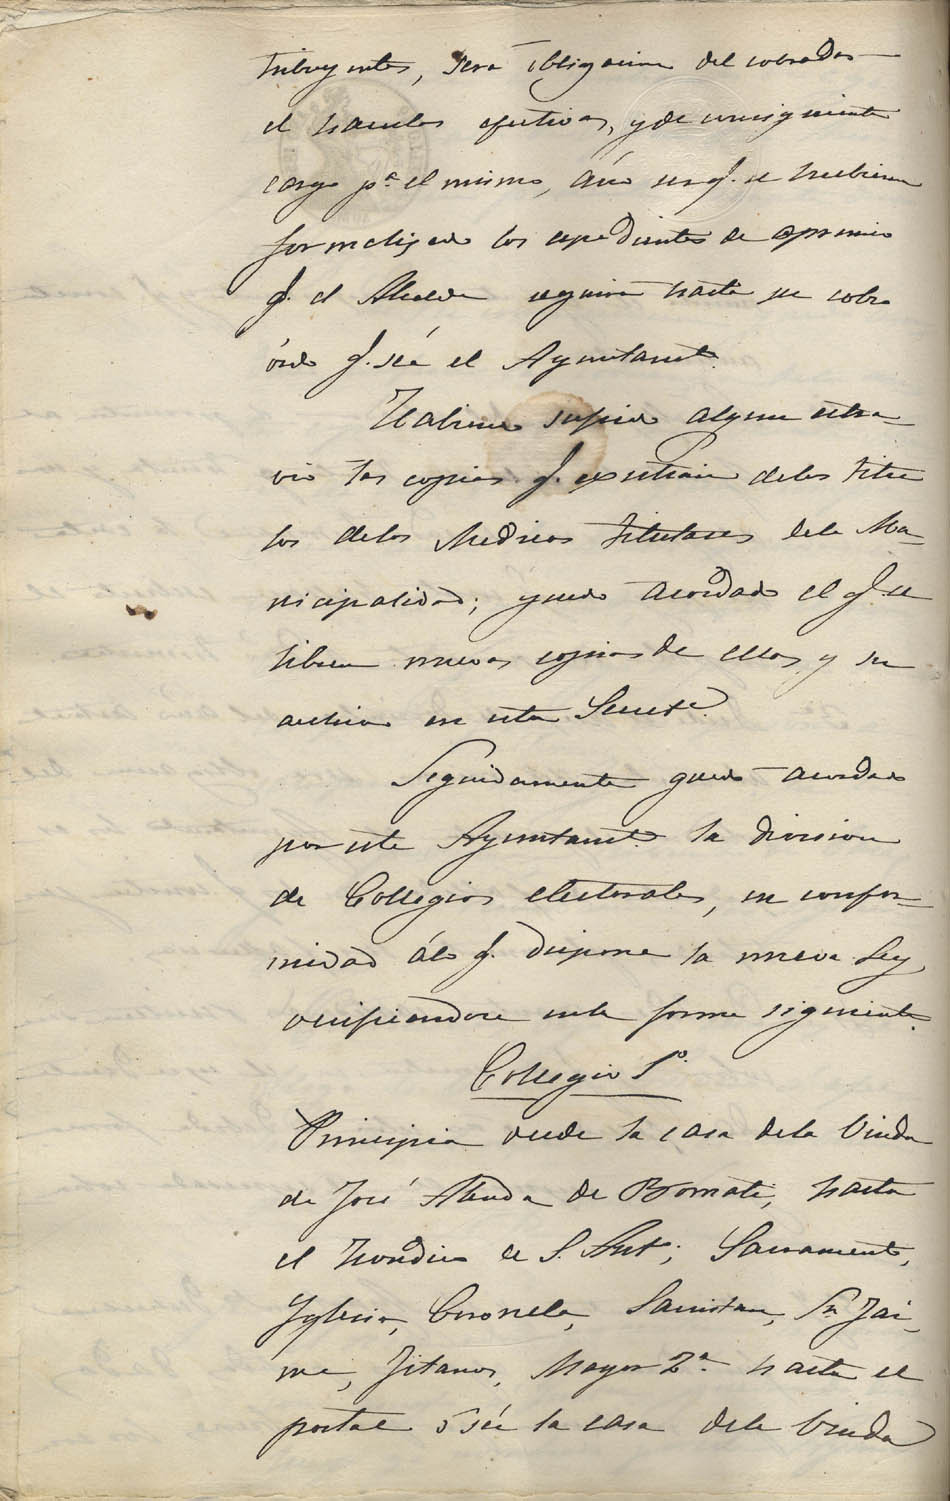 tribuyentes, sera obligacion del cobrador
el hacerlos efectivos, y de consiguiente
cargo pª el mismo, aún sin q.e se hubieren
formalizado los expedientes de apremio
q.e el Alcalde seguira hasta su cobro
ósea q.e séa el Ayuntamt.º
Habiendo sufrido algun estra-
vio las copias q.e existian delos titu
los delos Medicos titulares dela Mu-
nicipalidad; quedo acordado el q.e se
libren nuevas copias de ellos y se
archiven en esta Secretª.
Seguidamente quedo acordado
por este Ayuntamt.º la division
de Collegios electorales, en confor-
midad álo q.e dispone la nueva Ley,
verificandose enla forma siguiente.
Collegio 1º
Principia desde la casa dela Viuda
de José Abuda de Bernabé, hasta
el Hondico de S. Antº; Sacramento,
Yglesia, Coronela, Sanistan, Sn Jai-
me, Jitanos, Mayor 2ª hasta el
portal ó séa la casa dela Viuda